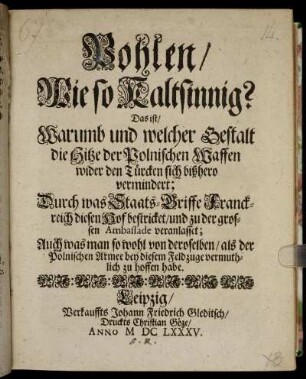 Pohlen/
Wie so Kaltsinnig?
Das ist/
Warumb und welcher Gestalt
die Hitze der Polnischen Waffen
wider den Türcken sich bißhero
vermindert;
Durch was Staats-Griffe Franck-
reich diesen Hof bestricket/und zu der gros-
sen Ambassade veranlasset;
Auch was man so wohl von deroselben/ als der
Polnischen Armee bey diesem Feldzuge vermuth-
lich zu hoffen habe.
Leipzig/
Verkauffts Johann Friedrich Gleditsch/
Druckts Christian Göze/
ANNO M DC LXXXV.